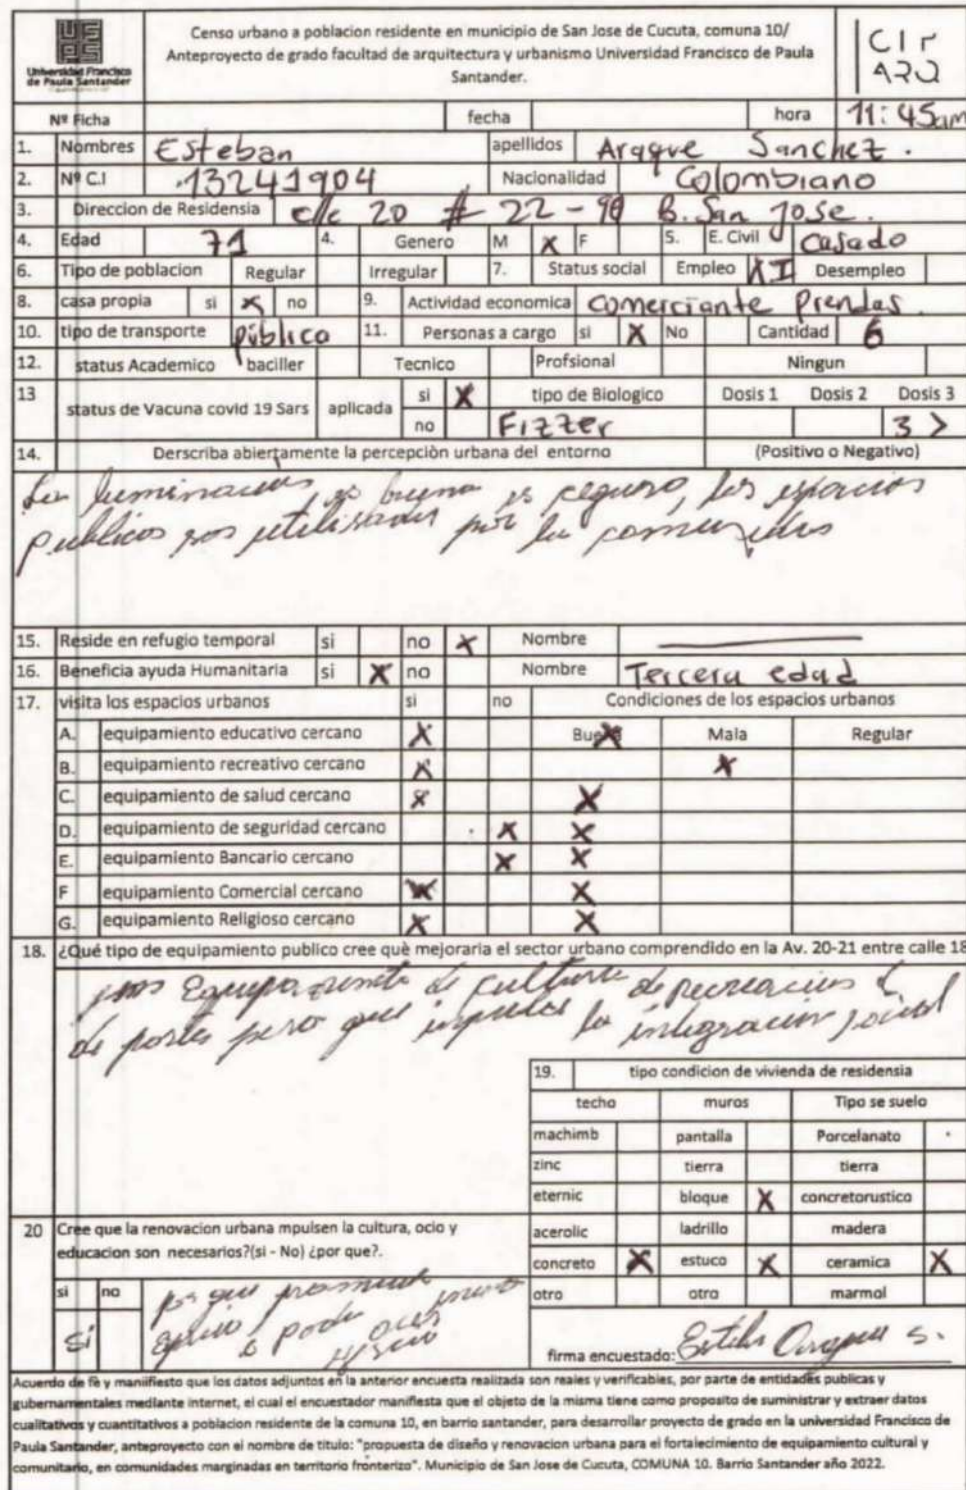 UFPS
Universidad Francisco
de Paula Santander
Censo urbano a poblacion residente en municipio de San Jose de Cucuta, comuna 10/
Anteproyecto de grado facultad de arquitectura y urbanismo Universidad Francisco de Paula
Santander.
Nº Ficha fecha hora 11:45am
1. Nombres Esteban apellidos Araque Sanchez.
2. Nº C.I 13241904 Nacionalidad Colombiano
3. Direccion de Residensia clc 20 # 22 - B. San Jose.
4. Edad 71 4. Genero M X F 5. E. Civil Casado
6. Tipo de poblacion Regular Irregular 7. Status social Empleo X I Desempleo
8. casa propia si X no 9. Actividad economica comerciante Prendas.
10. tipo de transporte público 11. Personas a cargo si X No Cantidad 6
12. status Academico baciller Tecnico Profsional Ningun
13 status de Vacuna covid 19 Sars aplicada si X tipo de Biologico Dosis 1 Dosis 2 Dosis 3
no Fizzer 3 >
14. Derscriba abiertamente la percepciòn urbana del entorno (Positivo o Negativo)
La es buena es seguro, los espacios
publicos son por la
15. Reside en refugio temporal si no X Nombre
16. Beneficia ayuda Humanitaria si X no Nombre Tercera edad
17. visita los espacios urbanos si no Condiciones de los espacios urbanos
A. equipamiento educativo cercano X Buena X Mala Regular
B. equipamiento recreativo cercano X X
C. equipamiento de salud cercano X X
D. equipamiento de seguridad cercano X X
E. equipamiento Bancario cercano X X
F equipamiento Comercial cercano X X
G. equipamiento Religioso cercano X X
18. ¿Qué tipo de equipamiento publico cree què mejoraria el sector urbano comprendido en la Av. 20-21 entre calle 18
de cultura de recreacion
de portes pero que la integracion social
19. tipo condicion de vivienda de residensia
techo muros Tipo se suelo
machimb pantalla Porcelanato
zinc tierra tierra
eternic bloque X concretorustico
acerolic ladrillo madera
concreto X estuco X ceramica X
otro otro marmol
20 Cree que la renovacion urbana mpulsen la cultura, ocio y
educacion son necesarios?(si - No) ¿por que?.
si no por que
si
firma encuestado: S.
Acuerdo de fè y maniifiesto que los datos adjuntos en la anterior encuesta realizada son reales y verificables, por parte de entidades publicas y
gubernamentales mediante internet, el cual el encuestador manifiesta que el objeto de la misma tiene como proposito de suministrar y extraer datos
cualitativos y cuantitativos a poblacion residente de la comuna 10, en barrio santander, para desarrollar proyecto de grado en la universidad Francisco de
Paula Santander, anteproyecto con el nombre de titulo: "propuesta de diseño y renovacion urbana para el fortalecimiento de equipamiento cultural y
comunitario, en comunidades marginadas en territorio fronterizo". Municipio de San Jose de Cucuta, COMUNA 10. Barrio Santander año 2022.